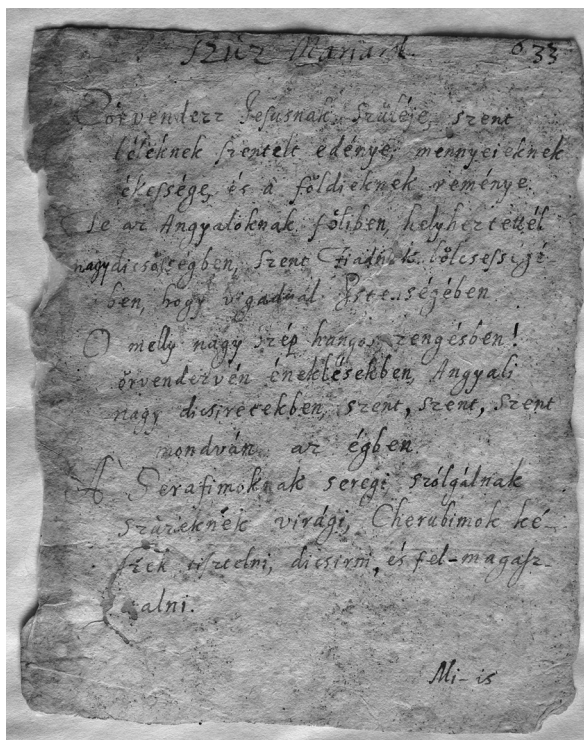 Szüz Mariaról. 633
Örvendezz Jesusnak Szüléje, szent
léleknek szentelt edénye, mennyeieknek
ékessége, és a' földieknek reménye.
Te az Angyaloknakföliben, helyheztettél
nagy dicsősségben, Szent Fiadnak bőlcsesszigé
ben, hogy vigadnál Istenségében
O melly nagy szép hangos zengésben!
örvendezvén éneklésekben, Angyali
nagy dicsiretekben, szent, szent, szent
mondván az égben.
A' Serafimoknak seregi szólgálnak
szüzeknek virági, Cherubimok ké-
szek tisztelni, dicsirni, és fel-magasz-
talni.
Mi-is